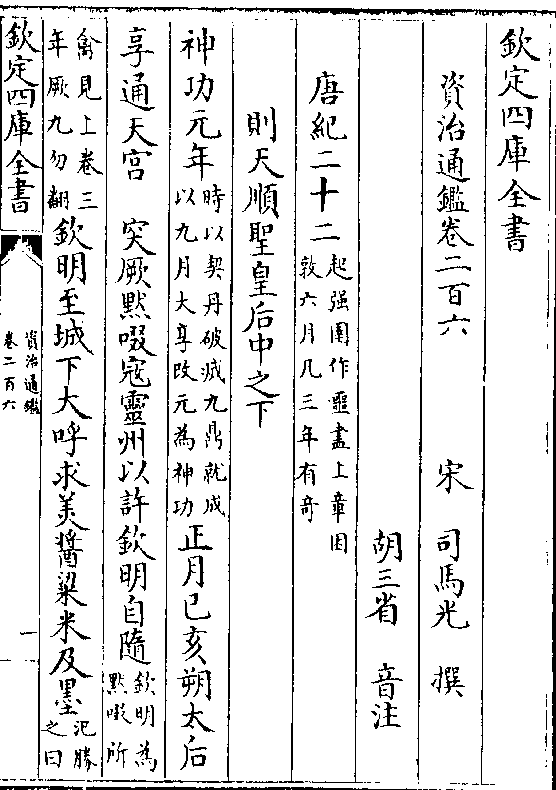 欽定四庫全書
資治通鑑卷二百六
宋 司馬光 撰
胡三省 音注
唐紀二十二
起强圉作噩盡上章困
敦六月凡三年有奇
則天順聖皇后中之下
神功元年
時以契丹破滅九鼎就成
以九月大享改元為神功
正月已亥朔太后
享通天宮 突厥默啜寇靈州以許欽明自隨
欽明為
默啜所
禽見上卷三
年厥九勿翻
欽明至城下大呼求美醬粱米及墨
汜勝
之曰
欽定四庫全書
資治通鑑
卷二百六
一